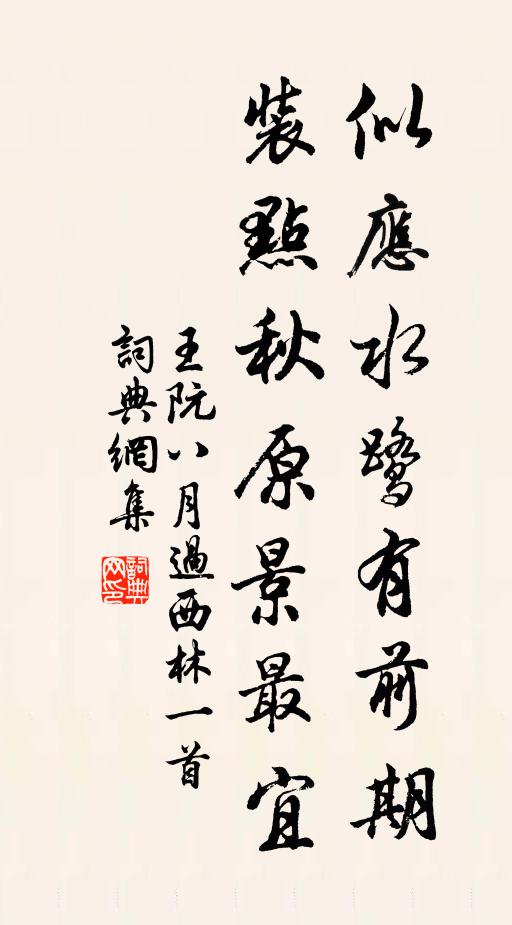 似應水鷺有前期
裝點秋原景最宜
王阮八月過西林一首
詞典網集
詞典网印